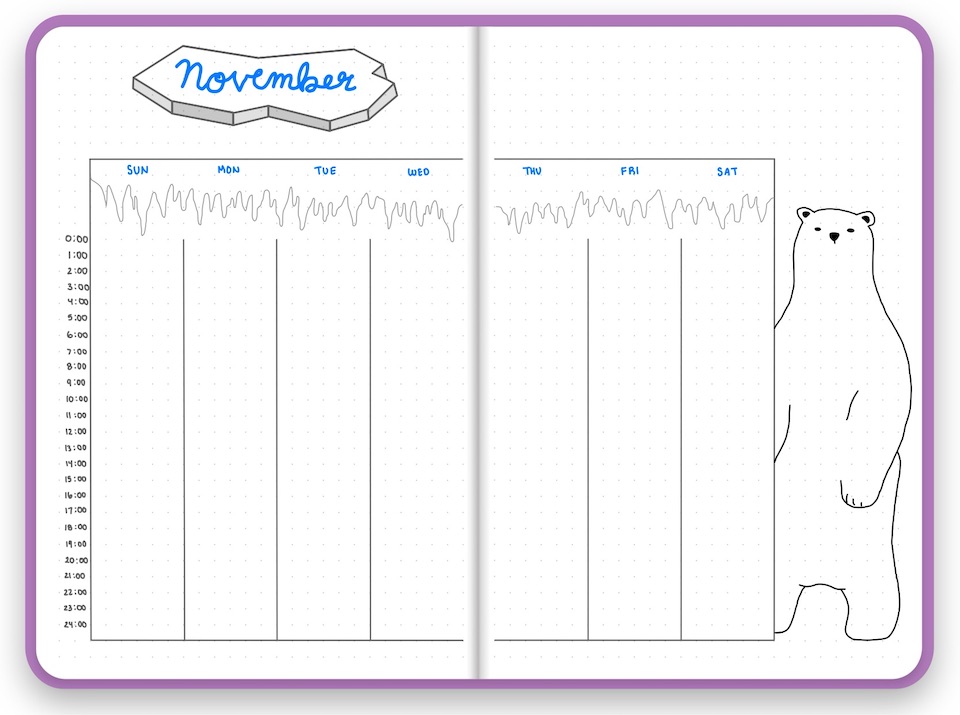 November
SUN MON TUE WED THU FRI SAT
0:00
1:00
2:00
3:00
4:00
5:00
6:00
7:00
8:00
9:00
10:00
11:00
12:00
13:00
14:00
15:00
16:00
17:00
18:00
19:00
20:00
21:00
22:00
23:00
24:00